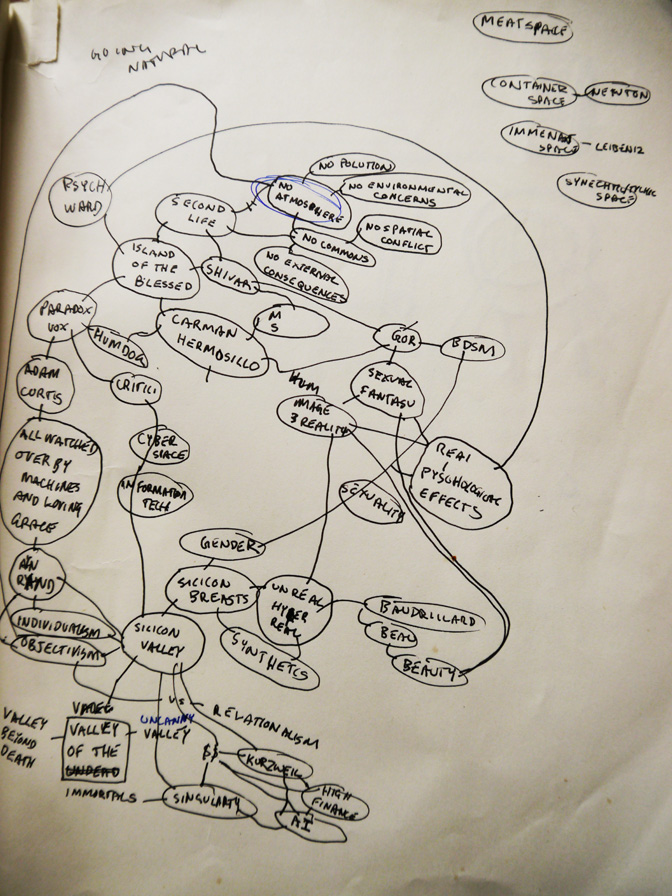 GOING
NATURAL
MEATSPACE
CONTAINER
SPACE
NEWTON
SPACE
LEIBENIZ
SPACE
PSYCH
WARD
SECOND
LIFE
NO
ATMOSPHERE
NO POLUTION
NO ENVIRONMENTAL
CONCERNS
NO COMMONS
NO SPATIAL
CONFLICT
NO EXTERNAL
CONSEQUENCES
ISLAND
OF THE
BLESSED
SHIVAR
PARADOX
VOX
HUMDOG
CARMAN
HERMOSILLO
M
S
GOR
BDSM
ADAM
CURTIS
CRITICI
SEXUAL
FANTASY
HUM
IMAGE
& REALITY
REAL
PYSCHOLOGICAL
EFFECTS
ALL WATCHED
OVER BY
MACHINES
AND LOVING
GRACE
CYBER
SPACE
INFORMATION
TECH
SEXUALITY
GENDER
AYN
RAND
SILICON
BREASTS
UNREAL
HYPER
REAL
BAUDRILLARD
BEAU
BEAUTY
SYNTHETICS
INDIVIDUALISM
OBJECTIVISM
SILICON
VALLEY
VS
RELATIONALISM
VALLEY
BEYOND
DEATH
VALLEY
OF THE
UNDEAD
UNCANNY
VALLEY
$$
KURZWEIL
HIGH
FINANCE
IMMORTALS
SINGULARITY
AI